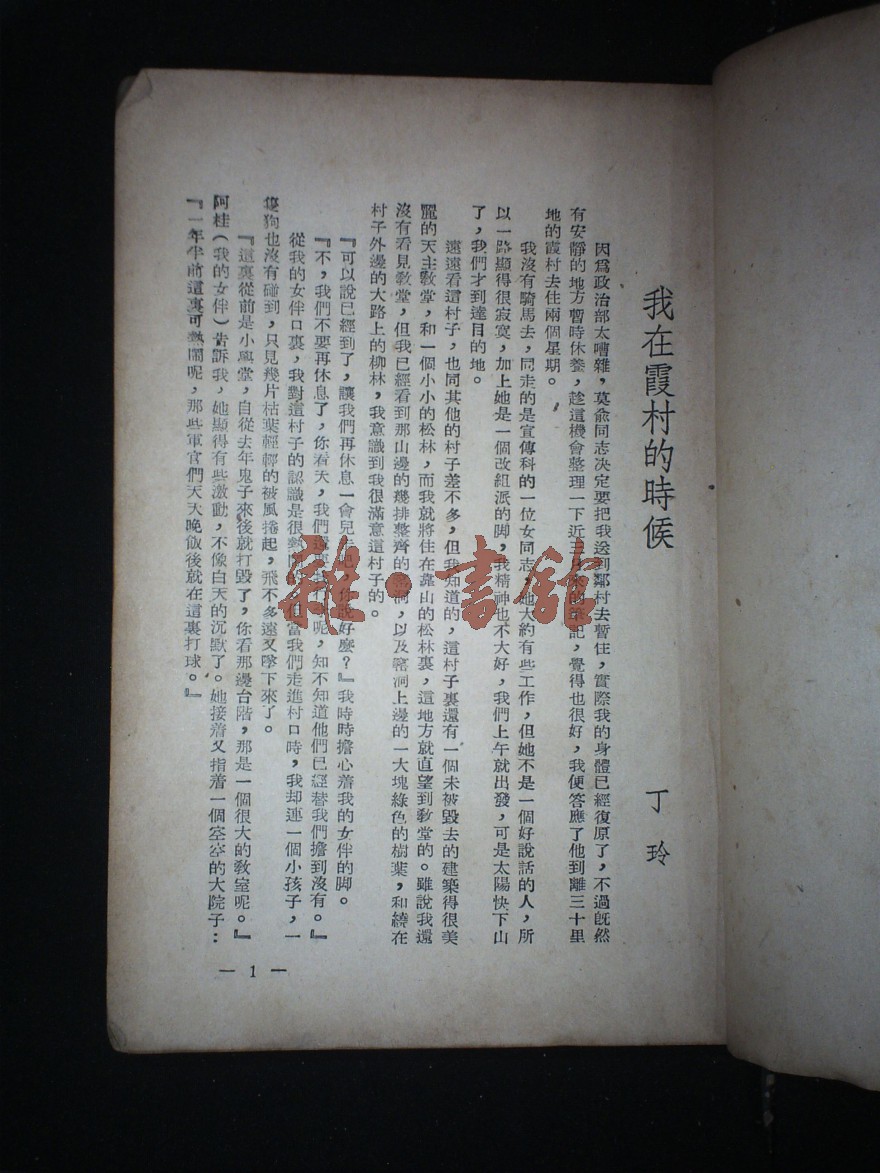 我在霞村的時候
丁玲
因爲政治部太嘈雜，莫兪同志决定要把我送到鄰村去暫住，實際我的身體已經復原了，不過旣然
有安靜的地方暫時休養，趁這機會整理一下近三月來的筆記，覺得也很好，我便答應了他到離三十里
地的霞村去住兩個星期。
我沒有騎馬去，同走的是宣傳科的一位女同志，她大約有些工作，但她不是一個好說話的人，所
以一路顯得很寂寞，加上她是一個改組派的脚，我精神也不大好，我們上午就出發，可是太陽快下山
了，我們才到達目的地。
遠遠看這村子，也同其他的村子差不多，但我知道的，這村子裏還有一個未被毀去的建築得很美
麗的天主敎堂，和一個小小的松林，而我就將住在靠山的松林裏，這地方就直望到敎堂的。雖說我還
沒有看見敎堂，但我已經看到那山邊的幾排整齊的窰洞，以及窰洞上邊的一大塊綠色的樹葉，和繞在
村子外邊的大路上的柳林，我意識到我很滿意這村子的。
『可以說已經到了，讓我們再休息一會兒吧，你說好麽？』我時時擔心着我的女伴的脚。
『不，我們不要再休息了，你看天，我們還呢，知不知道他們已經替我們擔到沒有。』
從我的女伴口裏，我對這村子的認識是很熱鬧的。但當我們走進村口時，我却連一個小孩子，一
隻狗也沒有碰到，只見幾片枯葉輕輕的被風捲起，飛不多遠又墜下來了。
『這裏從前是小學堂，自從去年鬼子來後就打毀了，你看那邊台階，那是一個很大的敎室呢。』
阿桂（我的女伴）告訴我，她顯得有些激動，不像白天的沉默了。她接着又指着一個空空的大院子：
『一年半前這裏可熱鬧呢，那些軍官們天天晚飯後就在這裏打球。』
— 1 —
雜·書館